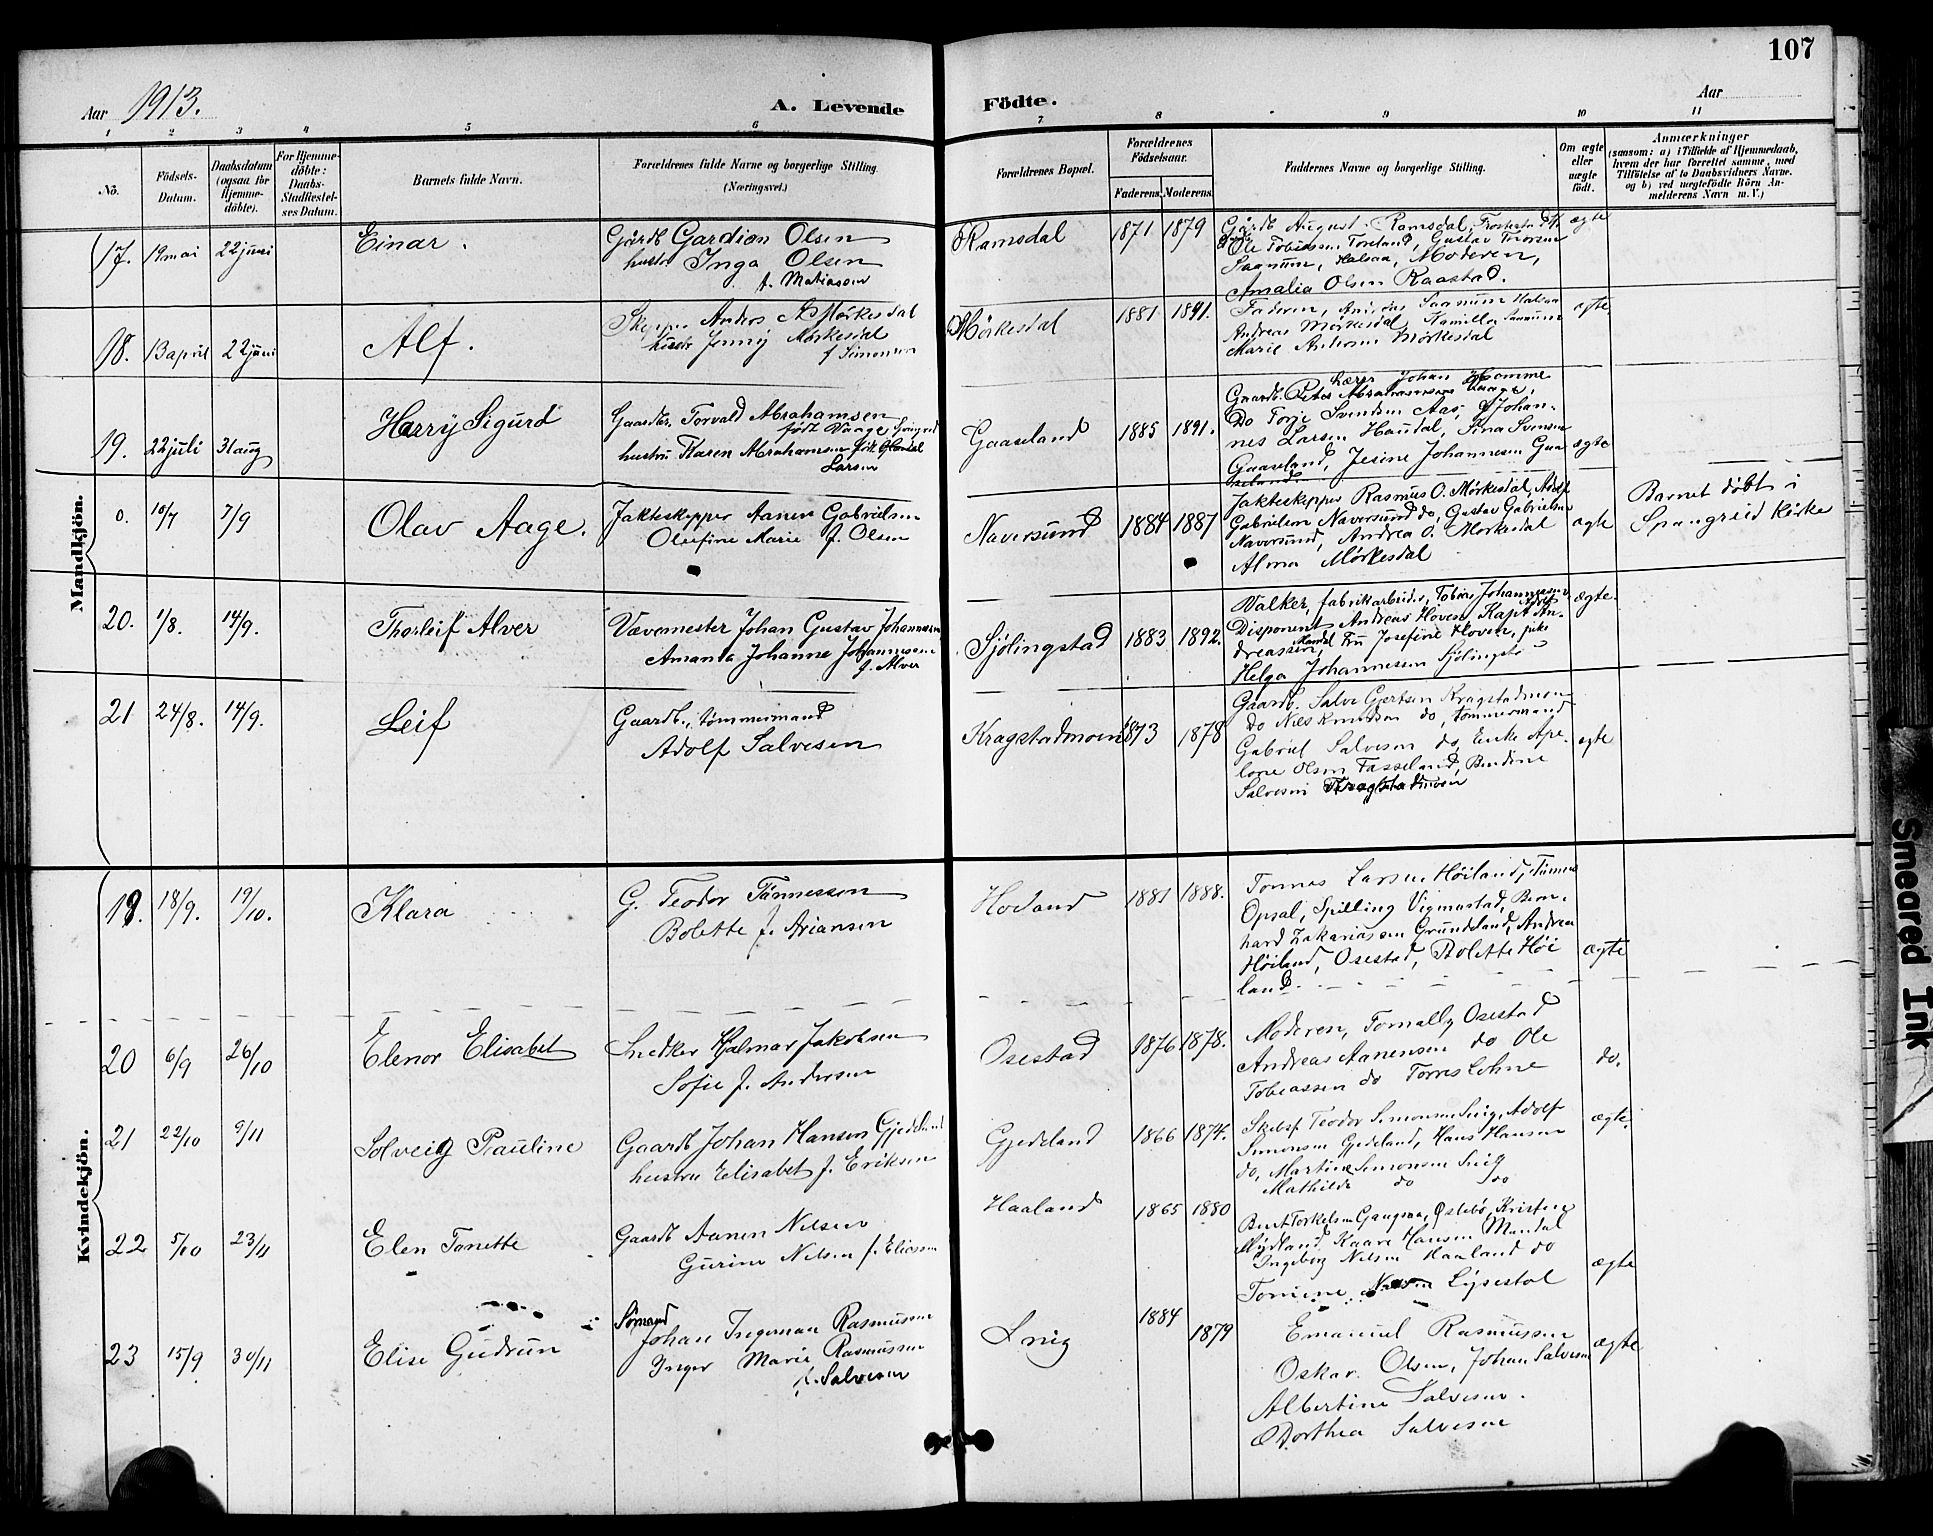 107
Aar 1913.
A. Levende Födte.
Aar
1 2 3 4 5 6 7 8 9 10 11
No.
Födsels-
Datum.
Daabsdatum
(ogsaa for
Hjemme-
döbte).
For Hjemme-
döbte:
Daabs-
Stadfæstel-
ses Datum.
Barnets fulde Navn.
Forældrenes fulde Navne og borgerlige Stilling
(Næringsvei.)
Forældrenes Bopæl.
Forældrenes
Födselsaar.
Faderens. Moderens.
Faddernes Navne og borgerlige Stilling.
Om ægte
eller
uægte
født.
Anmærkninger
(saasom: a) i Tilfælde af Hjemmedaab,
hvem der har forrettet samme, med
Tilföielse af to Daabsvidners Navne.
og b) ved uægtefödte Börn An-
melderens Navn m. V.)
Mandkjön.
17. 19 mai 22 juni Einar.
Gårdb Gardion Olsen
hustr Inga Olsen
f. Matiassen
Ramsdal 1871 1879
Gårdb August Ramsdal,
Ole Tobiassen Gustav
Moderen,
Amalia Olsen Raastad.
ægte
18. 13 april 22 juni Alf.
Anders Mörkesdal
hustr Jenny Mörkesdal
f Simonsen
Mörkesdal 1881 1891.
Faderen,
Andreas Mörkesdal, Kamilla
Marie Mörkesdal
ægte
19. 22 juli 31 aug Harry Sigurd
Gaardbr. Torvald Abrahamsen
født Vaage
hustru Karen Abrahamsen født
Larsen
Gaaseland 1885 1891.
Lærer Johan Homme
Gaardb. Peter Abrahamsen Vaage,
Do Torje Svendsen Aas, Johan-
nes Larsen Haudal, Sina Svensen
Gaaseland, Jesine Johannesen Gaa-
seland
ægte
0. 10/7 7/9 Olav Aage.
Jakteskipper Aanen Gabrielsen
Olufine Marie f. Olsen
Naversund 1884 1887
Jakteskipper Rasmus O. Mörkesdal, Adolf
Gabrielsen Naversund do, Gustav Gabrielsen
Naversund, Andrea O. Mörkesdal
Alma Mörkesdal
ægte
Barnet döbt i
Spangreid kirke
20. 1/8. 14/9. Thorleif Alver
Vævemester Johan Gustav Johannesen
Amanda Johanne Johannesen
f. Alver
Sjölingstad 1883 1892.
Valker, fabrikarbeider, Tobias Johannesen
Disponent Andreas Hoven, Kapt. An-
dreassen, Mandal Fru Josefine Hoven,
Helga Johannesen Sjölingsta
ægte.
21 24/8. 14/9. Leif
Gaardb., tømmermand
Adolf Salvesen
Kragstadmoen 1873 1878
Gaardb. Salve Gjertsen Kragstadmoen
do Nils Knudsen do, tømmermand
Gabriel Salvesen do, Enke Ape-
lone Olsen Fasseland, Bendine
Salvesen Kragstadmoen
ægte
Kvindekjön.
19. 18/9. 19/10. Klara
G. Teodor Tønnessen
Bolette f. Ariansen
Hoiland 1881 1888.
Tønnes Larsen Höiland, Tönnes
Opsal, Spilling Vigmostad, Bern-
hard Zakariassen Grundeland, Andrea
Höiland, Osestad, Bolette Höi
land
ægte
20 6/9 26/10 Elenor Elisabet
Snedker Hjalmar Jakobsen
Sofie f. Andersen
Osestad 1876 1878.
Moderen, Osestad
Andreas Aanensen do Ole
Tobiassen do
do.
21 22/10 9/11 Solveig Pauline
Gaardb Johan Hansen Gjedeland
hustru Elisabet f. Eriksen
Gjedeland 1866 1874.
Teodor Simonsen Snig, Adolf
Simonsen Gjedeland, Hans Hansen
do, Martine Simonsen Snig
Mathilde do do
ægte.
22 5/10 23/11 Elen Tonette
Gaardb Aanen Nilsen
Gurine Nilsen f. Eliassen
Haaland 1865 1880
Östebö, Kristen
Mydland, Kaare Hansen Mandal
Ingeborg Nilsen Haaland do
Tomine
ægte
23 15/9 30/11 Elise Gudrun
Sömand
Johan Ingeman Rasmussen
Inger Marie Rasmussen
f. Salvesen
Snig 1884 1879
Emanuel Rasmussen
Oskar Olsen, Johan Salvesen
Albertine Salvesen.
Dorthea Salvesen
ægte
Smeared Ink